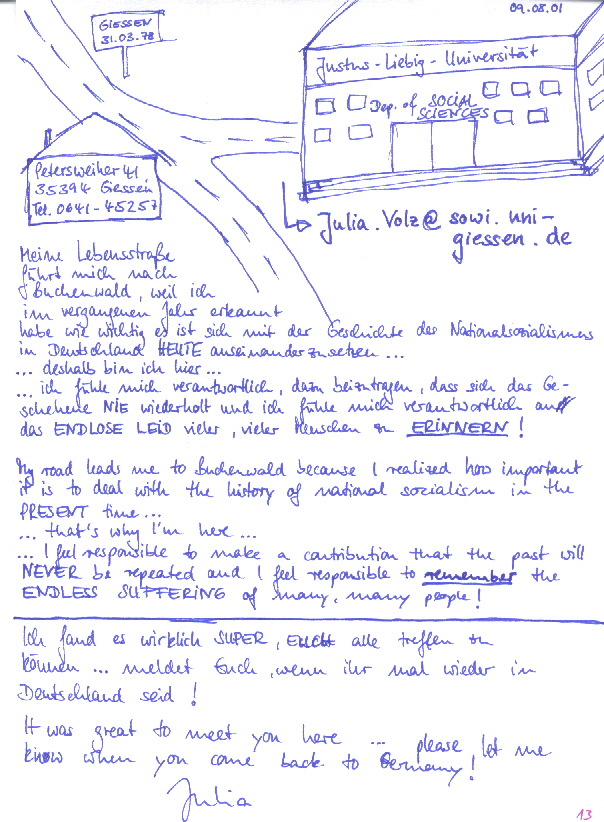 09.08.01
GIESSEN
31.03.78
Justus-Liebig-Universität
Dep. of SOCIAL
SCIENCES
Petersweiher 41
35394 Giessen
Tel. 0641-45257
Julia.Volz@sowi.uni-
giessen.de
Meine Lebensstraße
führt mich nach
Buchenwald, weil ich
im vergangenen Jahr erkannt
habe wie wichtig es ist sich mit der Geschichte des Nationalsozialismus
in Deutschland HEUTE auseinanderzusetzen ...
... deshalb bin ich hier ...
... ich fühle mich verantwortlich, dazu beizutragen, dass sich das Ge-
schehene NIE wiederholt und ich fühle mich verantwortlich an
das ENDLOSE LEID vieler, vieler Menschen zu ERINNERN!
My road leads me to Buchenwald because I realized how important
it is to deal with the history of national socialism in the
PRESENT time ...
... that's why I'm here ...
... I feel responsible to make a contribution that the past will
NEVER be repeated and I feel responsible to remember the
ENDLESS SUFFERING of many, many people!
Ich fand es wirklich SUPER, EUCH alle treffen zu
können ... meldet Euch, wenn ihr mal wieder in
Deutschland seid!
It was great to meet you here ... please let me
know when you come back to Germany!
Julia
13